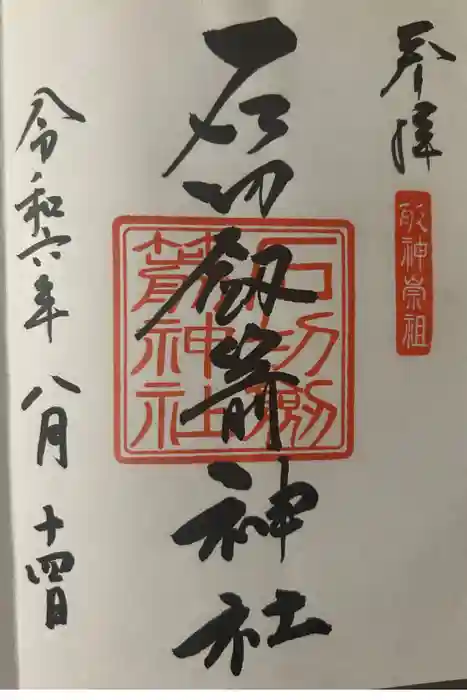 参拝
敬神崇祖
石切劔箭神社
石切劔
箭神社
令和六年 八月 十四日